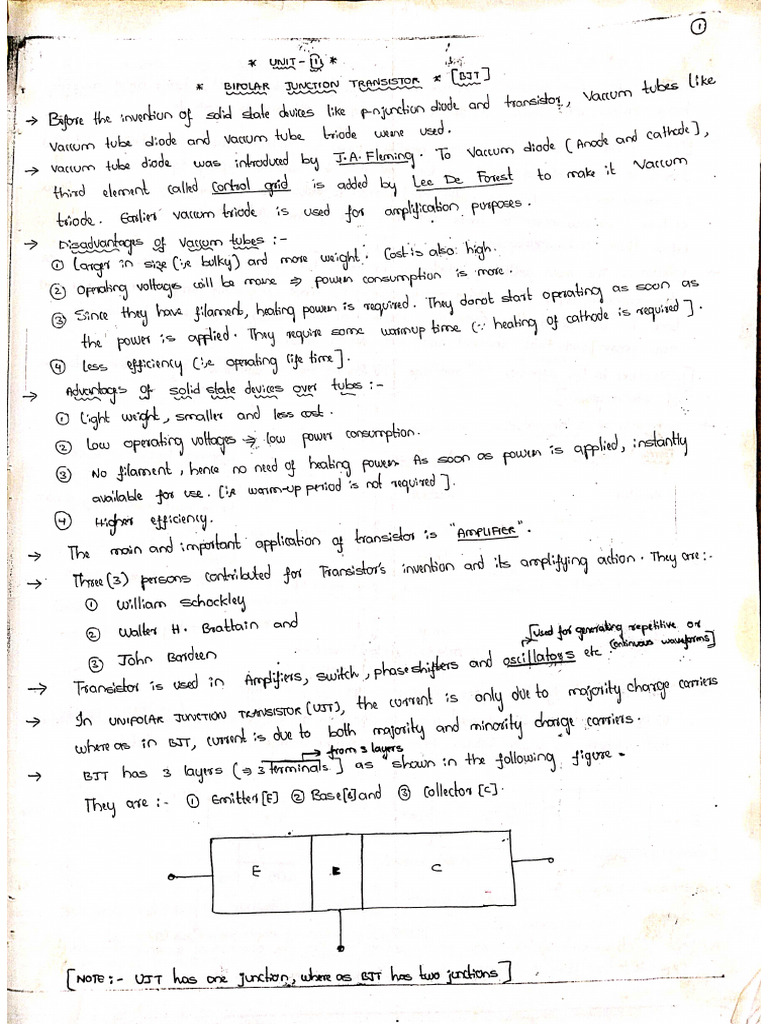 1
* UNIT-1 *
* BIPOLAR JUNCTION TRANSISTOR * [BJT]
→ Before the invention of solid state devices like p-n junction diode and transistor, Vaccum tubes like
vaccum tube diode and vaccum tube triode were used.
→ vaccum tube diode was introduced by J.A. Fleming. To Vaccum diode [Anode and cathode],
third element called control grid is added by Lee De Forest to make it Vaccum
triode. Earlier vaccum triode is used for amplification purposes.
→ Disadvantages of Vaccum tubes :-
① Larger in size (i.e bulky) and more weight. Cost is also high.
② Operating voltages will be more ⇒ power consumption is more.
③ Since they have filament, heating power is required. They donot start operating as soon as
the power is applied. They require some warmup time (∵ heating of cathode is required].
④ Less efficiency (i.e operating life time].
→ Advantages of solid state devices over tubes :-
① Light weight, smaller and less cost.
② Low operating voltages ⇒ low power consumption.
③ No filament, hence no need of heating power. As soon as power is applied, instantly
available for use. [i.e warm-up period is not required].
④ Higher efficiency.
→ The main and important application of transistor is "AMPLIFIER".
→ Three (3) persons contributed for Transistor's invention and its amplifying action. They are:-
① William Schockley
② Walter H. Brattain and
③ John Bardeen
[used for generating repetitive or
continuous waveforms]
→ Transistor is used in Amplifiers, switch, phase shifters and oscillators etc
→ In UNIPOLAR JUNCTION TRANSISTOR (UJT), the current is only due to majority charge carriers
where as in BJT, current is due to both majority and minority charge carriers.
→ from 3 layers
→ BJT has 3 layers (⇒ 3 terminals] as shown in the following figure.
They are :- ① Emitter [E] ② Base [B] and ③ Collector [C].
E B C
[NOTE :- UJT has one junction, where as BJT has two junctions]